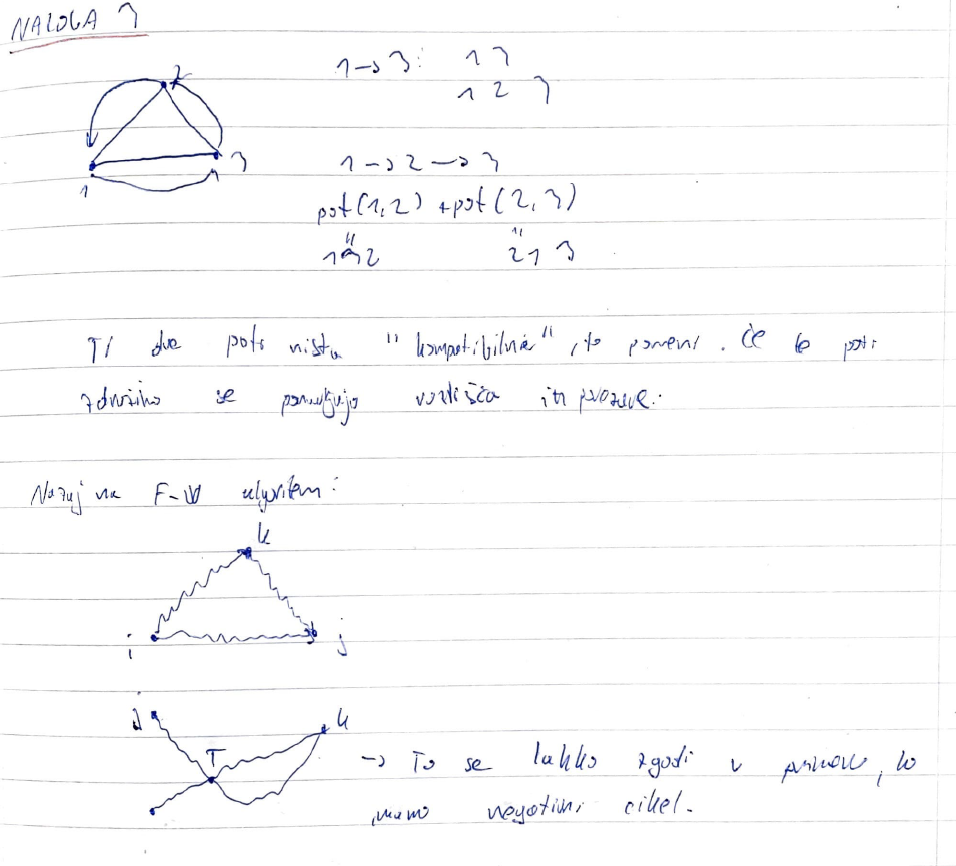 NALOGA 3
2
1 → 3: 1 3
1 2 3
3
1
1 → 2 → 3
pot(1,2) + pot(2,3)
" "
1 2 2 1 3
Ti dve poti nista "kompatibilni", to pomeni. Če te poti
združimo se ponavljajo vozlišča in povezave.
Nazaj na F-W algoritem:
k
i j
j k
T → To se lahko zgodi v primeru, ko
imamo negativni cikel.